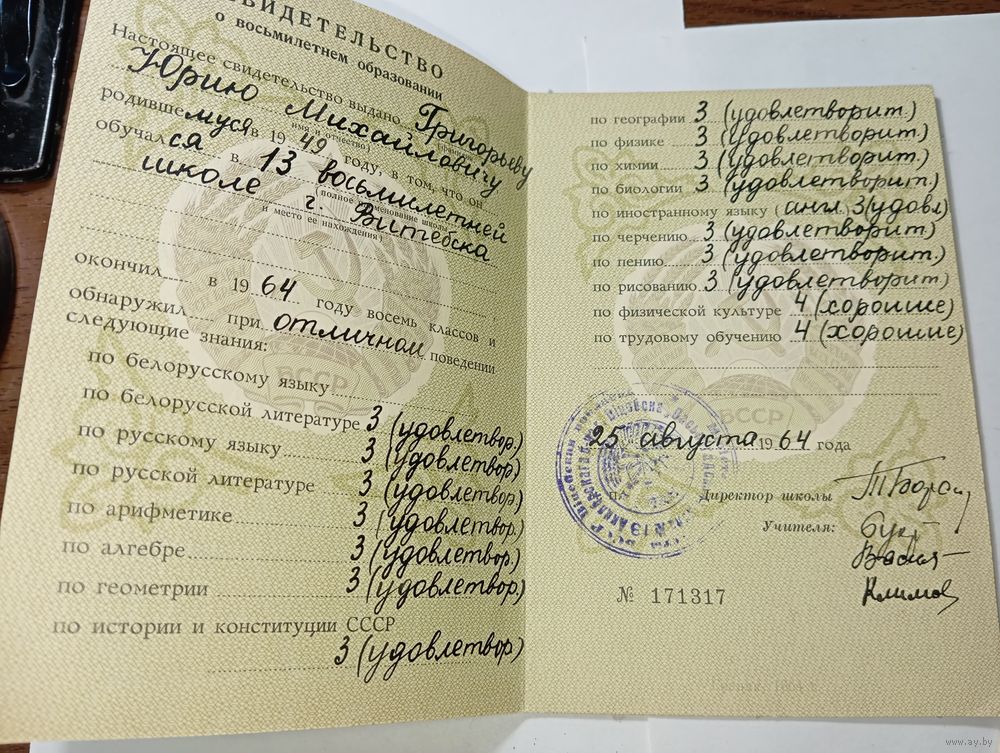 СВИДЕТЕЛЬСТВО
о восьмилетнем образовании
Настоящее свидетельство выдано Григорьеву
Юрию Михайловичу
(имя и отчество)
родившемуся в 1949 году, в том, что он
обучался в 13 восьмилетней
(полное наименование школы
школе г. Витебска
и место ее нахождения)
окончил в 1964 году восемь классов и
обнаружил при отличном поведении
следующие знания:
БССР
по белорусскому языку
по белорусской литературе 3 (удовлетвор.)
по русскому языку 3 (удовлетвор)
по русской литературе 3 (удовлетвор)
по арифметике 3 (удовлетвор.)
по алгебре 3 (удовлетвор)
по геометрии 3 (удовлетвор.)
по истории и конституции СССР
3 (удовлетвор)
по географии 3 (удовлетворит.)
по физике 3 (удовлетворит.)
по химии 3 (удовлетворит.)
по биологии 3 (удовлетворит.)
по иностранному языку (англ. 3 (удовл)
по черчению 3 (удовлетворит)
по пению 3 (удовлетворит.)
по рисованию 3 (удовлетворит)
по физической культуре 4 (хорошие)
по трудовому обучению 4 (хорошие)
БССР
25 августа 1964 года
Директор школы
Учителя:
Климов
№ 171317
www.ay.by